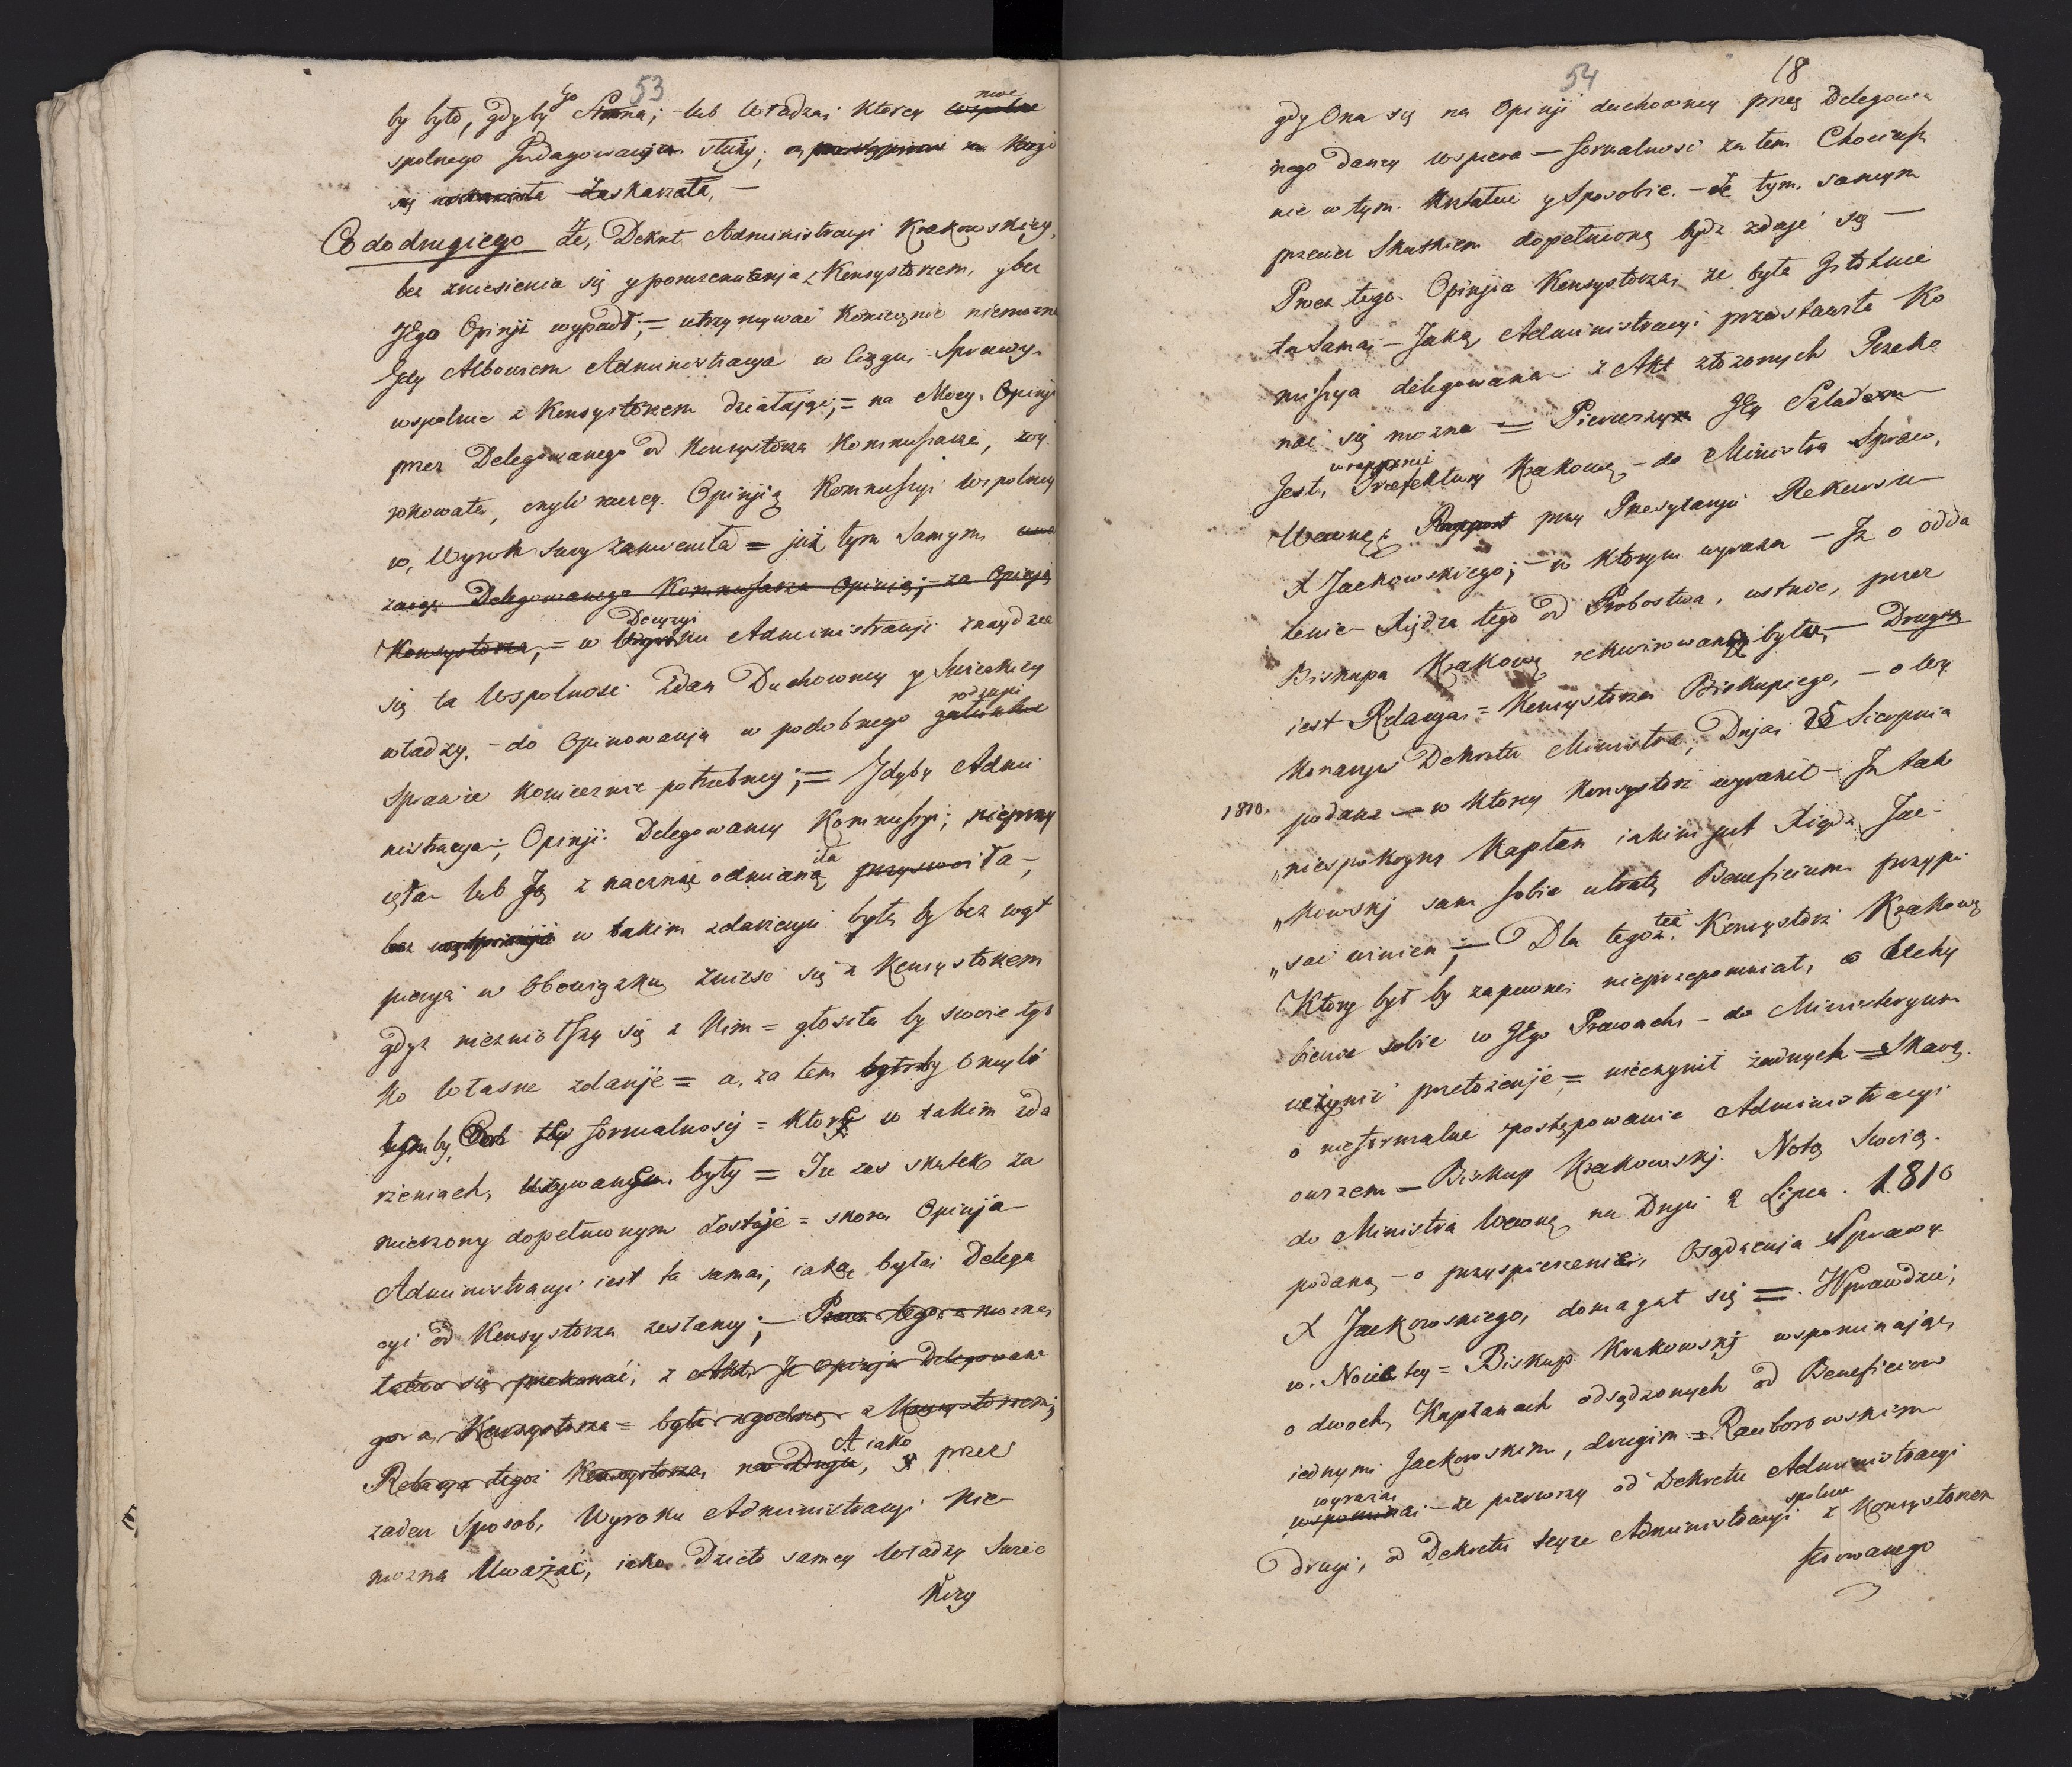 53
by było, gdyby go Strona; lub Władzai ktorey
spolnego Jndagowanja służy; na
się zaskarżała, —
Co do drugiego Że, Dekret Administracyi Krakowskiey,
bez zniesienia się y porozumienja z Konsystorzem, y bez
Jego Opinji wypadł; = utrzymywać koniecznie niemożna
Gdy Albowiem Administracya w Ciągu Sprawy
wspolnie z Konsystorzem działając; = na Mocy Opinji
przez Delegowanego od Konsystorza Kommissarza,
rokowała, czyli raczey Opinjią Kommissyi wspolney
w Wyrok swoy zamieniła = już tym samym
zaiąć Delegowanego Kommissarza Opinią; — za Opinją
Konsystorza, = w Decyzyi Wyroku Administracyi znaydzie
się ta Wspolność Zdań Duchowney y Swieckiey
władzy, — do Opinowanja w podobnego rodzaju gatunku
Sprawie koniecznie potrzebney; = Gdyby Admi
nistracya, Opinji Delegowaney Kommissyi, nieprzy
ięła lub Ją znacznie odmieniła
bez wątpienja w takim zdarzenju była by bez wąt
pienja w Obowiązku znieść się z Konsystorzem
gdyż niezniosłszy się z Nim = głosiła by swoie tyl
ko własne zdanje = a, za tem
formalnosci = ktore w takim zda
rzeniach, używanem były = Tu zas skutek za
mierzony dopełnionym zostaje = skoro Opinja
Administracyi iest ta sama, iaką była Delega
cyi od Konsystorza zesłaney; — Prócz tego można
łatwo się przekonać, z Akt, Je opinja Delegowane
go a, Konsystorza = była zgodna z Konsystorzem;
Relacya tegoż Konsystorza, na Dniu, A iako przez
żaden Sposob, Wyroku Administracyi nie
można Uważać, iako Dzieło samey Władzy Swiec
kiey
54
18
gdy Ona się na Opinji duchowney przez Delegowa
nego daney wspiera — formalność za tem Chociasz
nie w tym kształcie y sposobie. — że tym samym
przecież Skutkiem dopełnioną bydz zdaje się —
Prócz tego Opinjia Konsystorza, że była Jstotnie
ta Sama, — Jaką Administracyi przedstawiła Ko
missya delegowana z Akt złożonych Przeko
nać się można — Pierwszym Jey Sladem
Jest, w rapporcie Praefektury Krakows, — do Ministra Spraw,
Wewnę: Rapport przy Przesyłanju Rekursu
X Jackowskiego; — w ktorym wyraża — Jż o odda
lenie Xiędza tego od Probostwa, ustnie, przez
Biskupa Krakows rekwirowaną była, — Drugim
iest Relacya = Konsystorza Biskupiego, — o wy
konanju Dekretu Ministra, Dnja 25 Sierpnia
1810. podana — w ktorey Konsystorz wyraził — Jż tak
„niespokoyny Kapłan iakim jest Xiądz Jac-
„kowskj sam sobie utratę Beneficium przypi
„sać winien; — Dla tegoż też Konsystorz Krakows
Ktory był by zapewne nieprzepomniał, o Uchy
bienie sobie w Jego Prawach — do Ministeryum
uczynić przełożenje = nieczynił żadnych = Skarg
o nieformalne postępowanie Administracyi
owszem — Biskup Krakowskj Notą Swoią
do Ministra Wewnę na Dnju 2 Lipca. 1810
podaną — o przyspieszenie, Osądzenja Sprawy
X Jackowskiego, domagał się =. Wprawdzie;
w Nocie tey = Biskup Krakowskj wspominając,
o dwoch, Kapłanach odsądzonych od Beneficiow
iednym Jackowskim, drugim = Raciborowskim
wyraża wspomina — że pierwszy od Dekretu Administracyi
drugi, od Dekretu teyże Administracyi spolnie z Konsystorzem
ferowanego